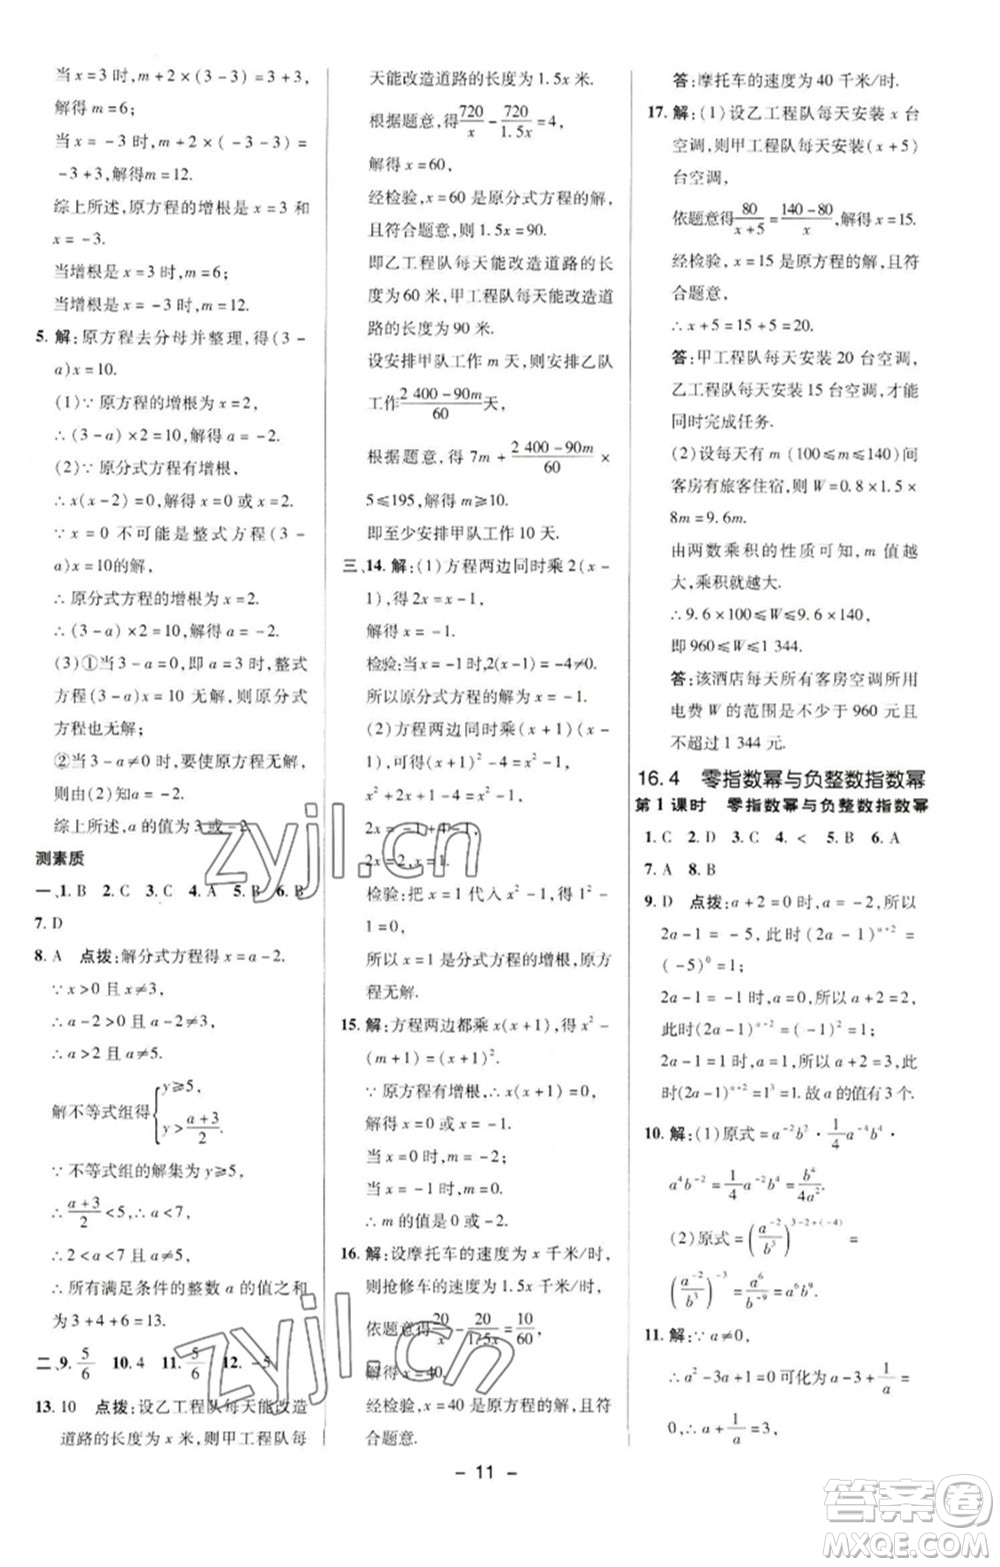 当x=3时,m+2×(3-3)=3+3,
解得m=6;
当x=-3时,m+2×(-3-3)=
-3+3,解得m=12.
综上所述,原方程的增根是x=3和
x=-3.
当增根是x=3时,m=6;
当增根是x=-3时,m=12.
5. 解:原方程去分母并整理,得(3-
a)x=10.
(1)∵原方程的增根为x=2,
∴(3-a)×2=10,解得a=-2.
(2)∵原分式方程有增根,
∴x(x-2)=0,解得x=0或x=2.
∵x=0不可能是整式方程(3-
a)x=10的解,
∴原分式方程的增根为x=2.
∴(3-a)×2=10,解得a=-2.
(3)①当3-a=0,即a=3时,整式
方程(3-a)x=10无解,则原分式
方程也无解;
②当3-a≠0时,要使原方程无解,
则由(2)知a=-2.
综上所述,a的值为3或-2.
测素质
一、1. B 2. C 3. C 4. A 5. B 6. B
7. D
8. A 点拨:解分式方程得x=a-2.
∵x>0且x≠3,
∴a-2>0且a-2≠3,
∴a>2且a≠5.
解不等式组得{y≥5, y>(a+3)/2.
∵不等式组的解集为y≥5,
∴(a+3)/2<5,∴a<7,
∴2<a<7且a≠5,
∴所有满足条件的整数a的值之和
为3+4+6=13.
二、9. 5/6 10. 4 11. 5/6 12. -5
13. 10 点拨:设乙工程队每天能改造
道路的长度为x米,则甲工程队每
天能改造道路的长度为1.5x米.
根据题意,得720/x-720/1.5x=4,
解得x=60,
经检验,x=60是原分式方程的解,
且符合题意,则1.5x=90.
即乙工程队每天能改造道路的长
度为60米,甲工程队每天能改造道
路的长度为90米.
设安排甲队工作m天,则安排乙队
工作(2 400-90m)/60天,
根据题意,得7m+(2 400-90m)/60×
5≤195,解得m≥10.
即至少安排甲队工作10天.
三、14. 解:(1)方程两边同时乘2(x-
1),得2x=x-1,
解得x=-1.
检验:当x=-1时,2(x-1)=-4≠0.
所以原分式方程的解为x=-1.
(2)方程两边同时乘(x+1)(x-
1),得(x+1)²-4=x²-1,
x²+2x+1-4=x²-1,
2x-3=-1,
2x=2,
x=1,
检验:把x=1代入x²-1,得x²-
1=0,
所以x=1是分式方程的增根,原方
程无解.
15. 解:方程两边都乘x(x+1),得x²-
(m+1)=(x+1)².
∵原方程有增根,∴x(x+1)=0,
解得x=0或x=-1.
当x=0时,m=-2;
当x=-1时,m=0.
∴m的值是0或-2.
16. 解:设摩托车的速度为x千米/时,
则抢修车的速度为1.5x千米/时,
依题意得20/x-20/1.5x=10/60,
解得x=40,
经检验,x=40是原方程的解,且符
合题意.
答:摩托车的速度为40千米/时.
17. 解:(1)设乙工程队每天安装x台
空调,则甲工程队每天安装(x+5)
台空调,
依题意得80/(x+5)=(140-80)/x,解得x=15.
经检验,x=15是原方程的解,且符
合题意,
∴x+5=15+5=20.
答:甲工程队每天安装20台空调,
乙工程队每天安装15台空调,才能
同时完成任务.
(2)设每天有m(100≤m≤140)间
客房有旅客住宿,则W=0.8×1.5×
8m=9.6m.
由两数乘积的性质可知,m值越
大,乘积就越大.
∴9.6×100≤W≤9.6×140,
即960≤W≤1 344.
答:该酒店每天所有客房空调所用
电费W的范围是不少于960元且
不超过1 344元.
16.4 零指数幂与负整数指数幂
第1课时 零指数幂与负整数指数幂
1. C 2. D 3. C 4. < 5. B 6. A
7. A 8. B
9. D 点拨:a+2=0时,a=-2,所以
2a-1=-5,此时(2a-1)ᵃ⁺²=
(-5)⁰=1;
2a-1=-1时,a=0,所以a+2=2,
此时(2a-1)ᵃ⁺²=(-1)²=1;
2a-1=1时,a=1,所以a+2=3,此
时(2a-1)ᵃ⁺²=1³=1.故a的值有3个.
10. 解:(1)原式=a⁻²b²·1/4a⁻⁴b⁴·
a⁴b⁻²=1/4a⁻²b⁴=b⁴/4a².
(2)原式=(a⁻²/b³)³⁻²⁺⁽⁻⁴⁾=
(a⁻²/b³)⁻³=a⁶/b⁻⁹=a⁶b⁹.
11. 解:∵a≠0,
∴a²-3a+1=0可变形为a-3+1/a=
0,∴a+1/a=3,
- 11 -
zyjl.cn
zyjl.cn
答案圈
MXQE.COM